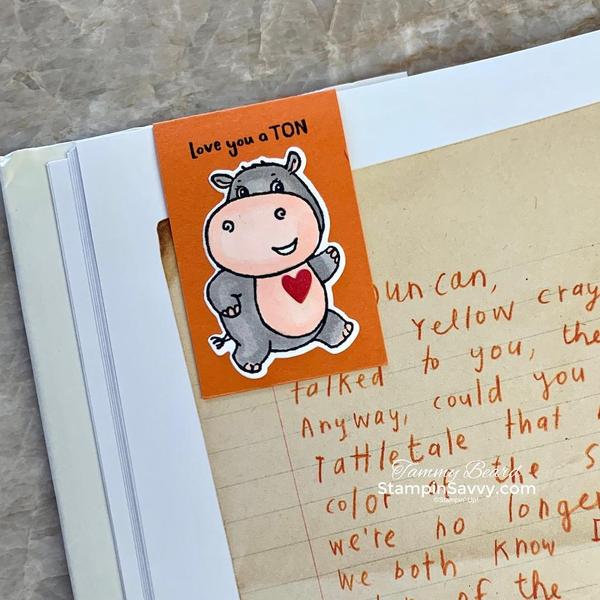 Love you a TON
uncan,
Yellow cray
talked to you, the
Anyway, could you
Tattletale that
color of the s
we're no longer
we both know
of the
Tammy Beard
StampinSavvy.com
©Stampin' Up!